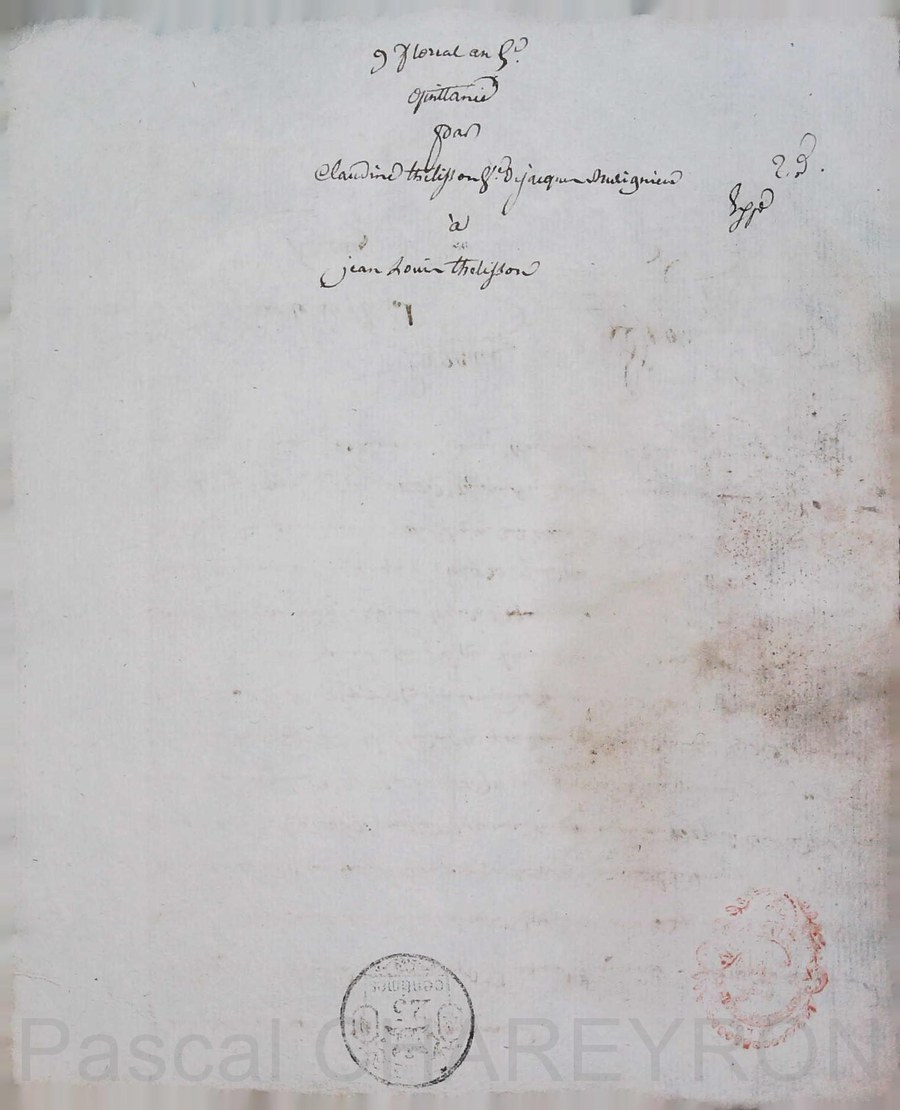 9 floreal an
Quittance
par
Claudine thelisson f.e de jacques
2.d.
Exp.é
à
jean Louis thelisson
centimes
25
Pascal CHAREYRON